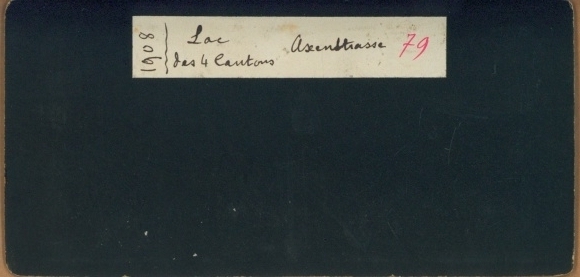 1908
Lac Axenstrasse 79
des 4 Cantons